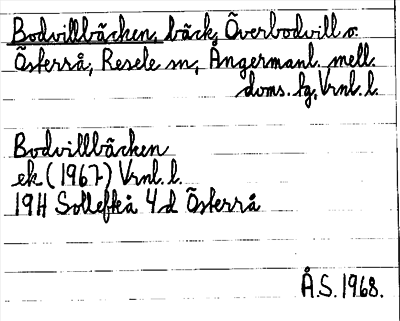 Bodvillbäcken, bäck, Överbodvill o.
Österrå, Resele sn, Ångermanl. mell.
doms. tg, Vrnl. l.
Bodvillbäcken
ek (1967) Vrnl. l.
19H Sollefteå 4d Österrå
Å.S. 1968.